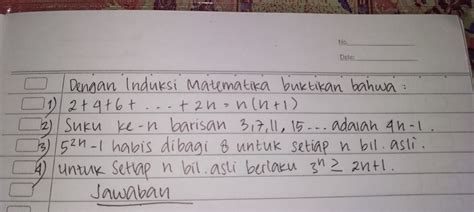 No.
Date:
Dengan Induksi Matematika buktikan bahwa :
1) 2+4+6+ ... + 2n = n(n+1)
2) Suku ke-n barisan 3,7,11, 15... adalah 4n-1.
3) 5²ⁿ-1 habis dibagi 8 untuk setiap n bil. asli.
4) untuk setiap n bil. asli berlaku 3ⁿ ≥ 2n+1.
Jawaban